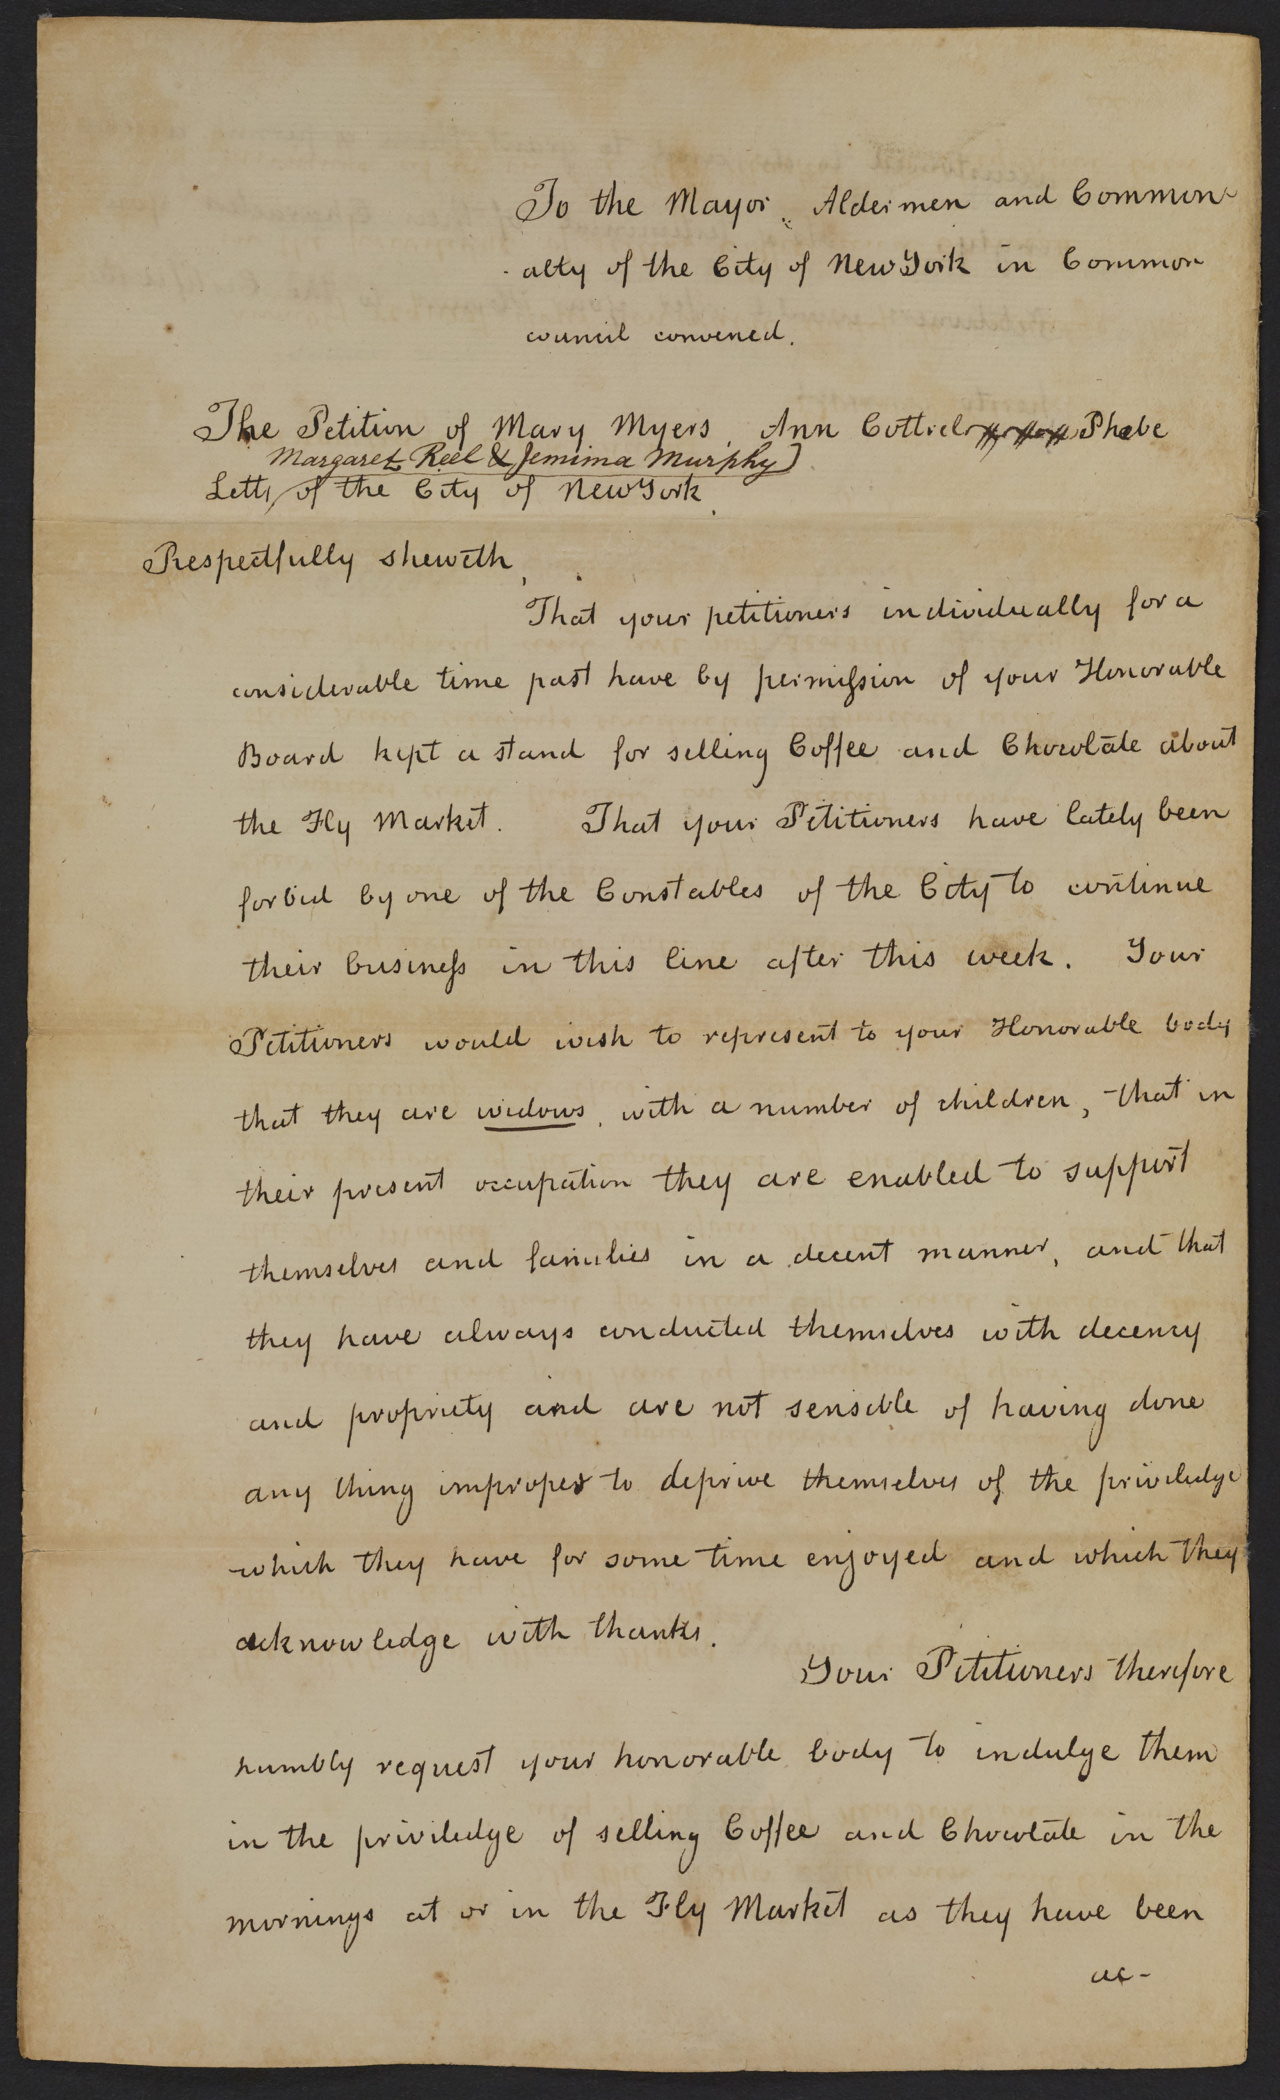 To the Mayor, Aldermen and Common-
-alty of the City of New York in Common
council convened.
The Petition of Mary Myers, Ann Cottrel Phebe
Margaret Reel & Jemima Murphy
Letts of the City of New York.
Respectfully sheweth,
That your petitioners individually for a
considerable time past have by permission of your Honorable
Board kept a stand for selling Coffee and Chocolate about
the Fly Market. That your Petitioners have lately been
forbid by one of the Constables of the City to continue
their business in this line after this week. Your
Petitioners would wish to represent to your Honorable body
that they are widows, with a number of children, that in
their present occupation they are enabled to support
themselves and families in a decent manner, and that
they have always conducted themselves with decency
and propriety and are not sensible of having done
any thing improper to deprive themselves of the priviledge
which they have for some time enjoyed and which they
acknowledge with thanks.
Your Petitioners therefore
humbly request your honorable body to indulge them
in the priviledge of selling Coffee and Chocolate in the
mornings at or in the Fly Market as they have been
ac-